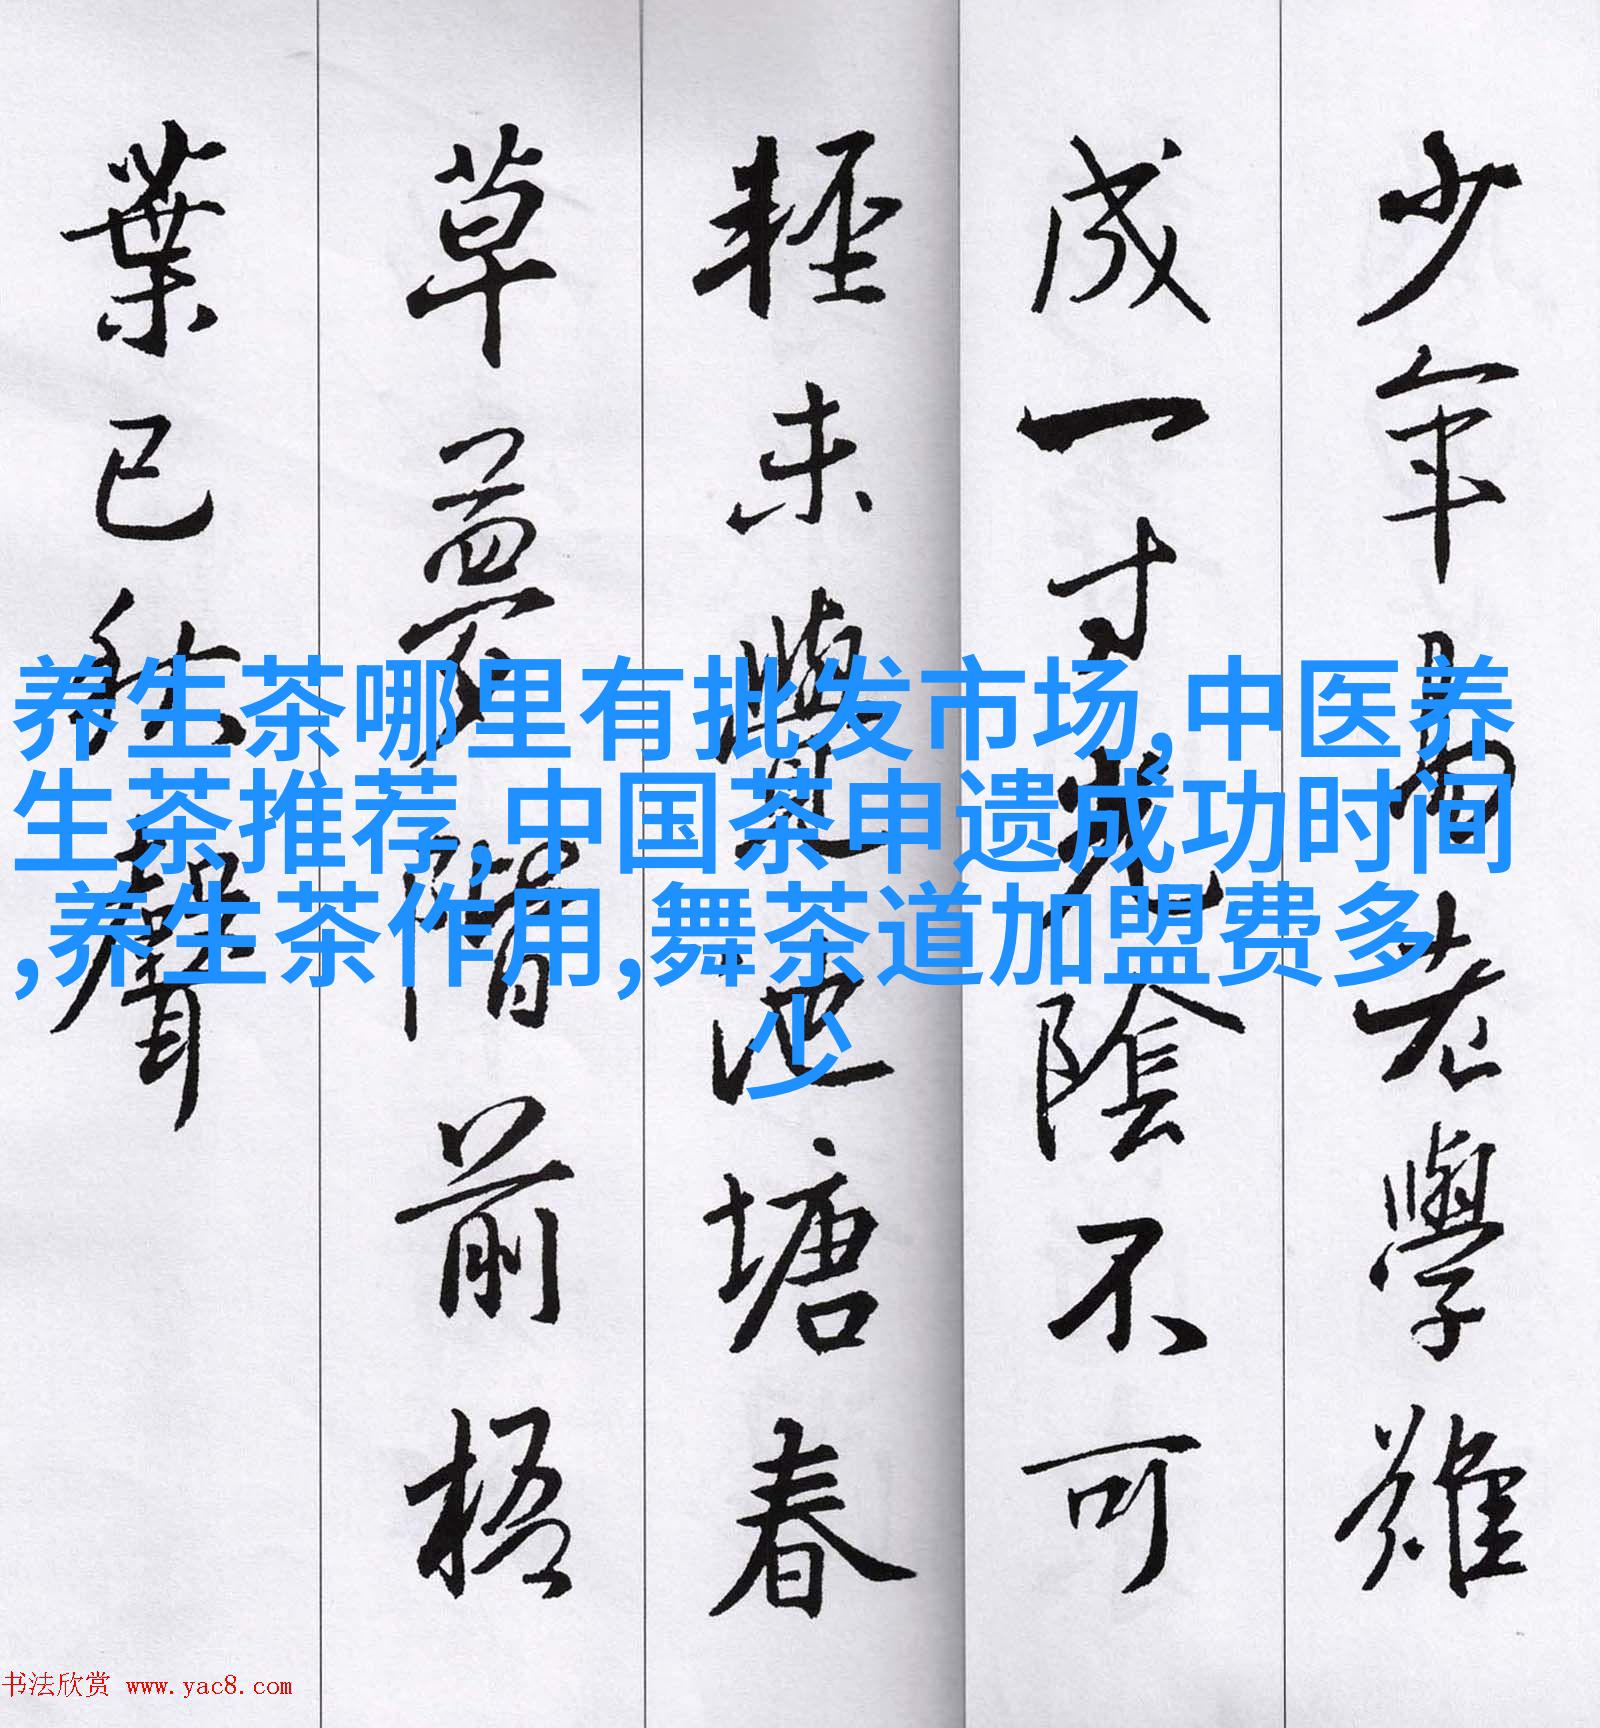 少年易老學難
成一寸光陰不可
輕未覺池塘春
草夢階前梧
葉已秋聲
养生茶哪里有批发市场,中医养
生茶推荐,中国茶申遗成功时间
,养生茶作用,舞茶道加盟费多
少
书法欣赏 www.yac8.com